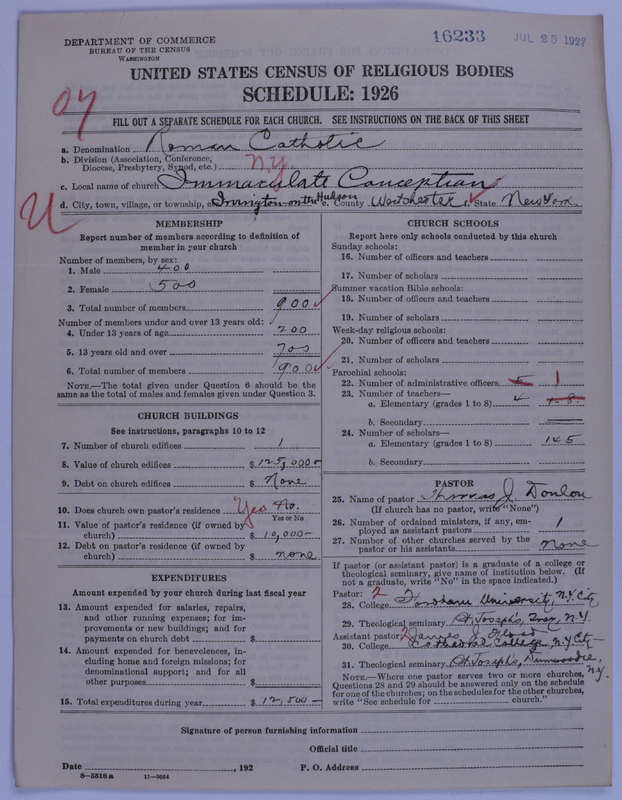 DEPARTMENT OF COMMERCE
BUREAU OF THE CENSUS
WASHINGTON
16233
JUL 25 1927
UNITED STATES CENSUS OF RELIGIOUS BODIES
SCHEDULE: 1926
FILL OUT A SEPARATE SCHEDULE FOR EACH CHURCH. SEE INSTRUCTIONS ON THE BACK OF THIS SHEET
a. Denomination Roman Catholic
b. Division (Association, Conference,
Diocese, Presbytery, Synod, etc.) N.Y.
c. Local name of church Immaculate Conception
d. City, town, village, or township, etc. Irvington-on-the-Hudson e. County Westchester f. State New York
U
MEMBERSHIP
Report number of members according to definition of
member in your church
Number of members, by sex:
1. Male 400
2. Female 500
3. Total number of members 900
Number of members under and over 13 years old:
4. Under 13 years of age 200
5. 13 years old and over 700
6. Total number of members 900
NOTE.—The total given under Question 6 should be the
same as the total of males and females given under Question 3.
CHURCH BUILDINGS
See instructions, paragraphs 10 to 12
7. Number of church edifices 1
8. Value of church edifices $ 125,000-
9. Debt on church edifices $ None
10. Does church own pastor's residence Yes No.
Yes or No
11. Value of pastor's residence (if owned by
church) $ 10,000-
12. Debt on pastor's residence (if owned by
church) $ none
EXPENDITURES
Amount expended by your church during last fiscal year
13. Amount expended for salaries, repairs,
and other running expenses; for im-
provements or new buildings; and for
payments on church debt $
14. Amount expended for benevolences, in-
cluding home and foreign missions; for
denominational support; and for all
other purposes $
15. Total expenditures during year $ 12,500-
CHURCH SCHOOLS
Report here only schools conducted by this church
Sunday schools:
16. Number of officers and teachers
17. Number of scholars
Summer vacation Bible schools:
18. Number of officers and teachers
19. Number of scholars
Week-day religious schools:
20. Number of officers and teachers
21. Number of scholars
Parochial schools:
22. Number of administrative officers 1
23. Number of teachers—
a. Elementary (grades 1 to 8) 4
b. Secondary
24. Number of scholars—
a. Elementary (grades 1 to 8) 145
b. Secondary
PASTOR
25. Name of pastor Thomas J. Donlon
(If church has no pastor, write "None")
26. Number of ordained ministers, if any, em-
ployed as assistant pastors 1
27. Number of other churches served by the
pastor or his assistants none
If pastor (or assistant pastor) is a graduate of a college or
theological seminary, give name of institution below. (If
not a graduate, write "No" in the space indicated.)
Pastor: 2
28. College Fordham University, N.Y. City
29. Theological seminary St. Josephs, Troy, N.Y.
Assistant pastor: 2 James J.
30. College Cathedral College, N.Y. City
31. Theological seminary St Josephs, Dunwoodie, N.Y.
NOTE.—Where one pastor serves two or more churches,
Questions 28 and 29 should be answered only on the schedule
for one of the churches; on the schedules for the other churches,
write "See schedule for church."
Signature of person furnishing information
Official title
Date , 192 P. O. Address
8-5518a 11-9034